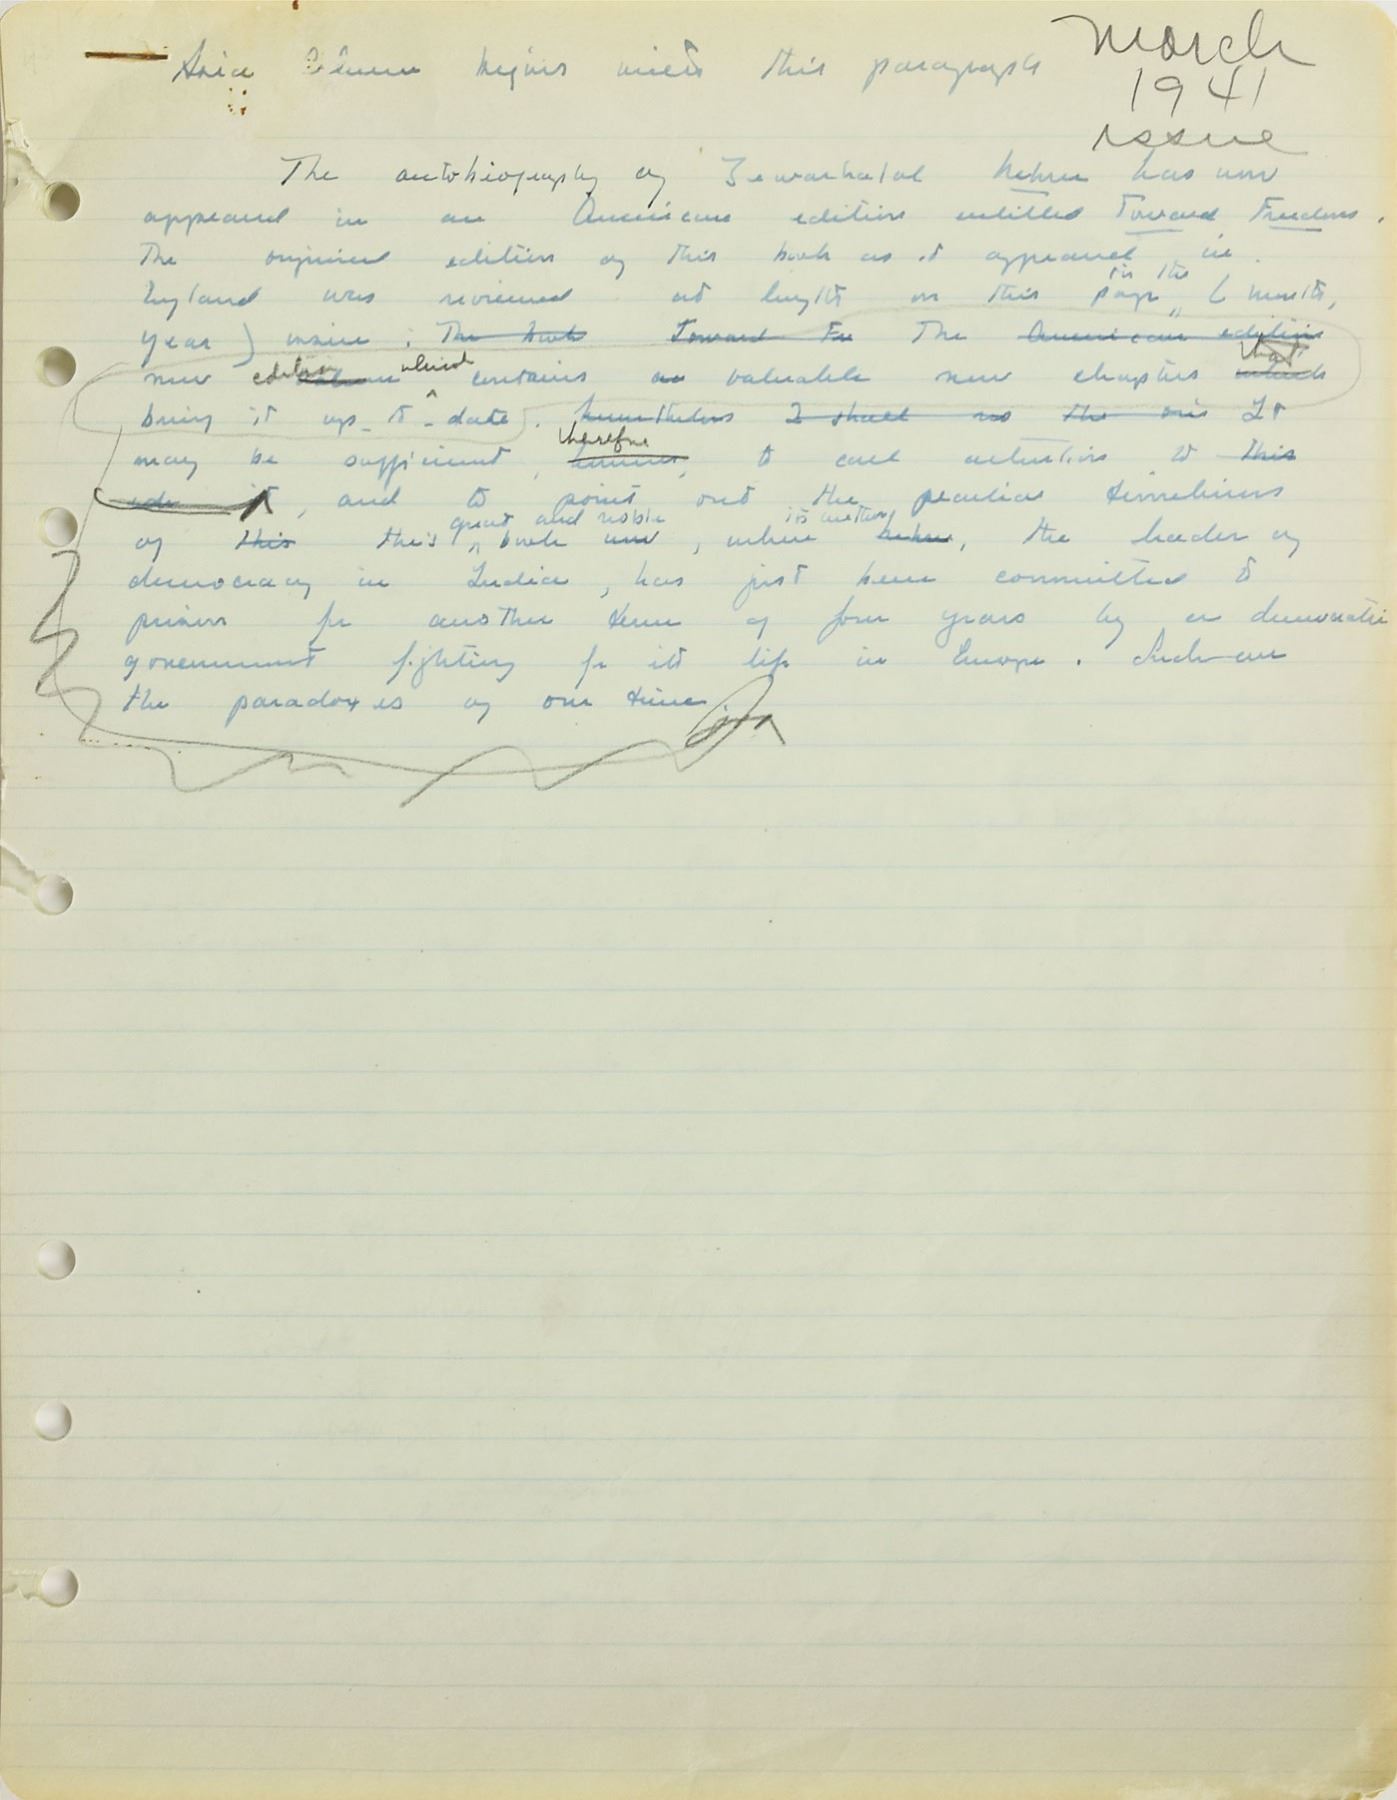 Asia begins with this paragraph
March
1941
issue
The autobiography of Jewarhalal Nehru has now
appeared in an American edition entitled Toward Freedom.
The original edition of this book as it appeared in
England was reviewed at length on this page in the (month,
year) issue. The book Toward Fr The American edition
new edition which contains an valuable new chapters which that
bring it up-to-date. Nevertheless I shall no the ori It
may be sufficient, therefore, to call attention to this
edi it, and to point out the peculiar timeliness
of this this great and noble book now, when Nehru its author, the leader of
democracy in India, has just been committed to
prison for another term of four years by a democratic
government fighting for its life in Europe. Such are
the paradoxes of our time.